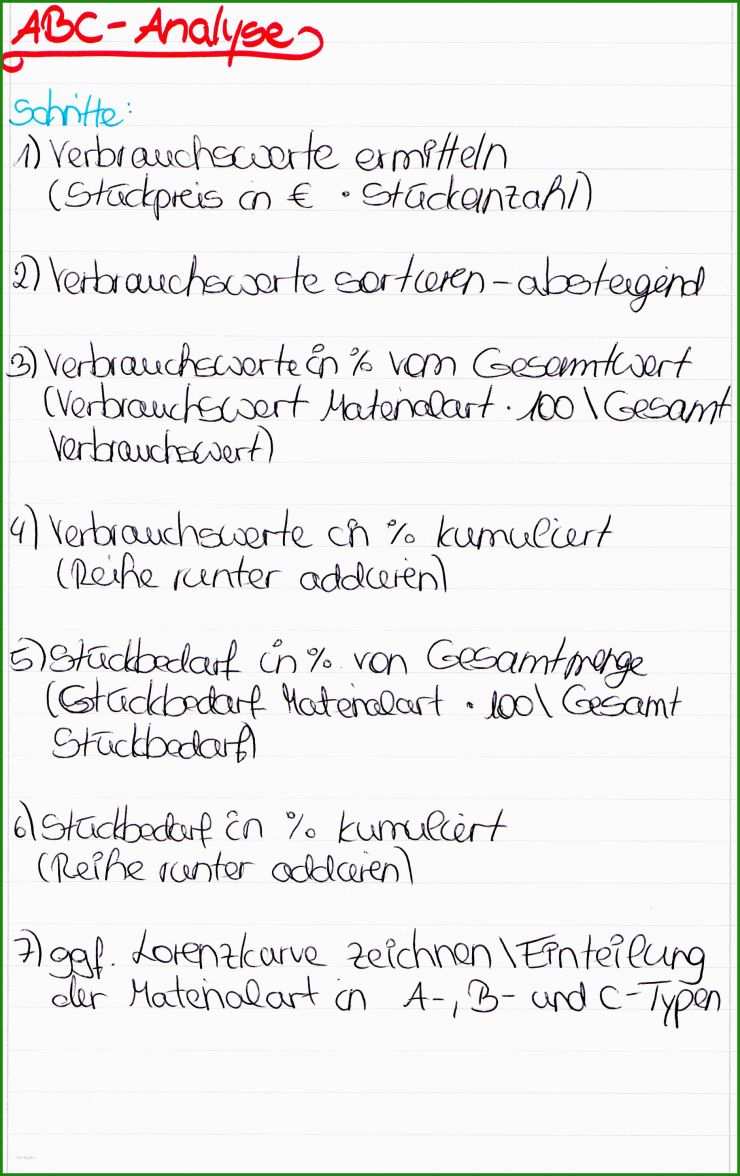 ABC-Analyse
Schritte:
1) Verbrauchswerte ermitteln
(Stückpreis in € · Stückanzahl)
2) Verbrauchswerte sortieren - absteigend
3) Verbrauchswerte in % vom Gesamtwert
(Verbrauchswert Materialart · 100 \ Gesamt
Verbrauchswert)
4) Verbrauchswerte in % kumuliert
(Reihe runter addieren)
5) Stückbedarf in % von Gesamtmenge
(Stückbedarf Materialart · 100 \ Gesamt
Stückbedarf)
6) Stückbedarf in % kumuliert
(Reihe runter addieren)
7) ggf. Lorenzkurve zeichnen \ Einteilung
der Materialart in A-, B- und C-Typen